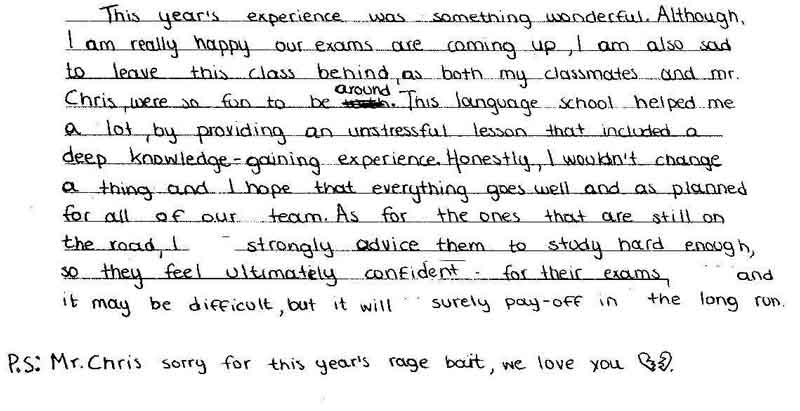 This year's experience was something wonderful. Although,
I am really happy our exams are coming up, I am also sad
to leave this class behind, as both my classmates and mr.
Chris, were so fun to be around. This language school helped me
a lot, by providing an unstressful lesson that included a
deep knowledge-gaining experience. Honestly, I wouldn't change
a thing and I hope that everything goes well and as planned
for all of our team. As for the ones that are still on
the road, I strongly advice them to study hard enough,
so they feel ultimately confident for their exams, and
it may be difficult, but it will surely pay-off in the long run.
P.S: Mr. Chris sorry for this year's rage bait, we love you